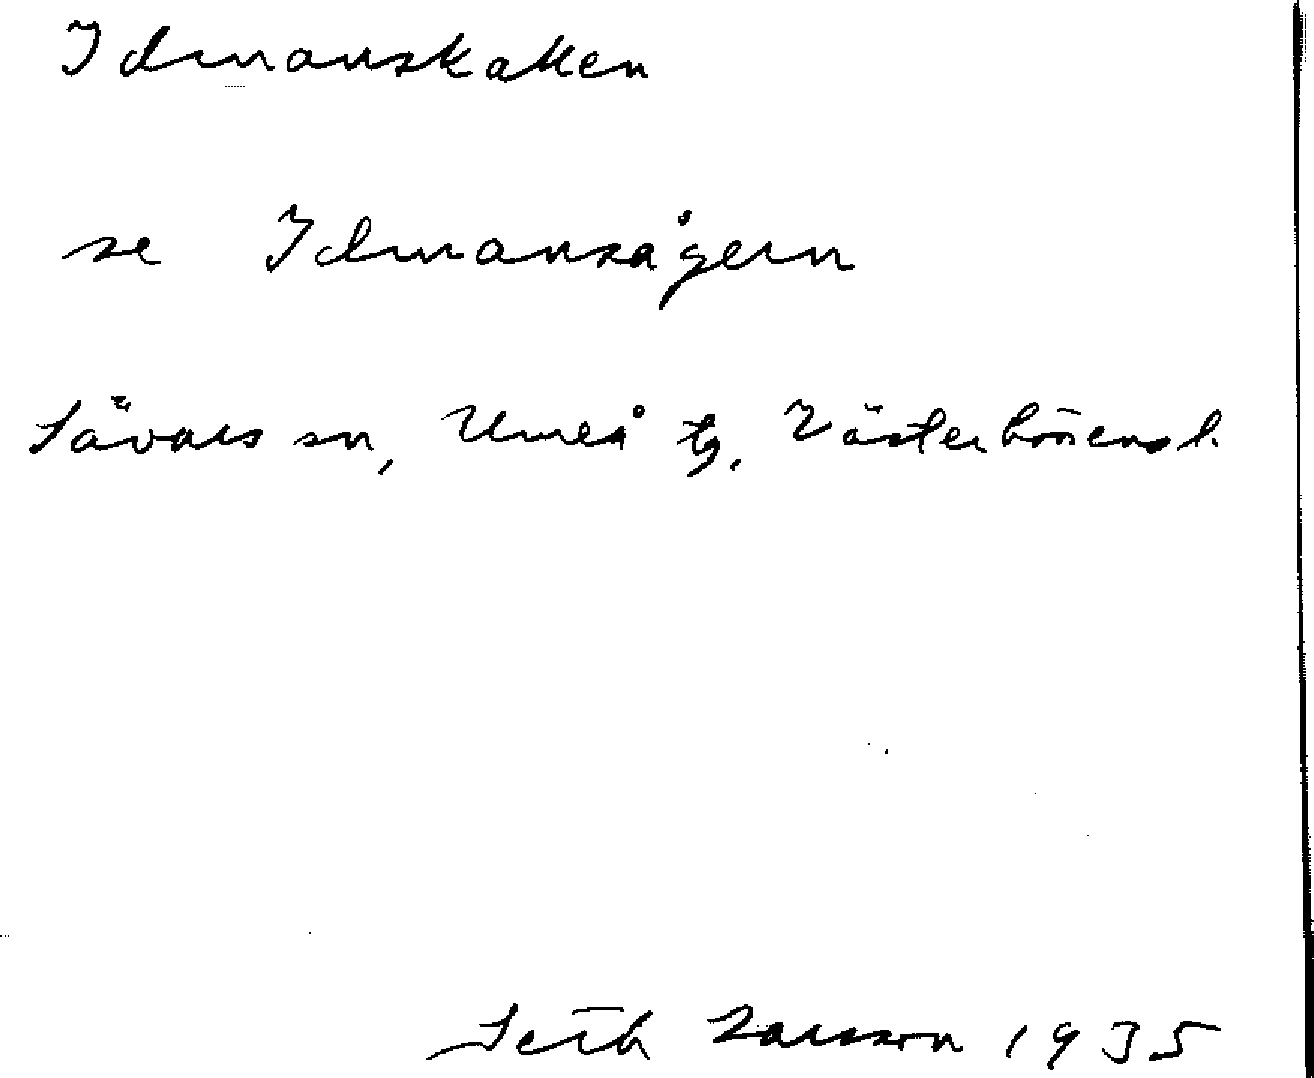 Idmanskatten
se Idmansågern
Sävars sn, Umeå tg, Västerbottens l.
Seth Larsson 1935